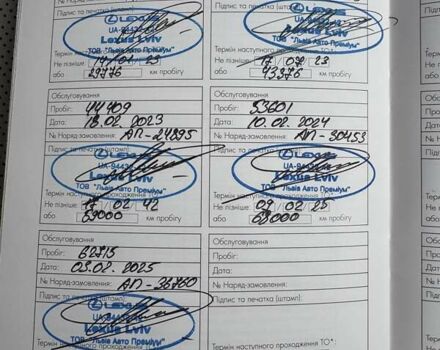 № Наряд-замовлення:
Підпис та печатка (штамп)
LEXUS
Lexus Lviv
ТОВ "Львів Авто Преміум"
Термін наступного
Не пізніше: 23
або 29776 км пробігу
Підпис та печатка
LEXUS
UA-
Lexus Lviv
ТОВ "Львів Авто Преміум"
Термін наступного
Не пізніше: 17 07 23
або 43376 км пробігу
Обслуговування
Пробіг: 44409
Дата: 18.02 2023
№ Наряд-замовлення: АП-24295
Підпис та печатка (штамп):
LEXUS
Lexus Lviv
ТОВ "Львів Авто Преміум"
Термін наступного проходження ТО*:
Не пізніше: 17 02
або 59000 км пробігу
Обслуговування
Пробіг: 53601
Дата: 10.02.2024
№ Наряд-замовлення: АП-30453
LEXUS
Lexus Lviv
ТОВ "Львів Авто Преміум"
Термін наступного проходження ТО*:
Не пізніше: 09 02 25
або 68000 км пробігу
Обслуговування
Пробіг: 62715
Дата: 03.02.2025
№ Наряд-замовлення: АП-36760
Підпис та печатка (штамп):
LEXUS
Lexus Lviv
ТОВ "Львів Авто Преміум"
Термін наступного проходження ТО*:
Обслуговування
Пробіг:
Дата:
№ Наряд-замовлення:
Підпис та печатка (штамп):
Термін наступного проходження ТО*: